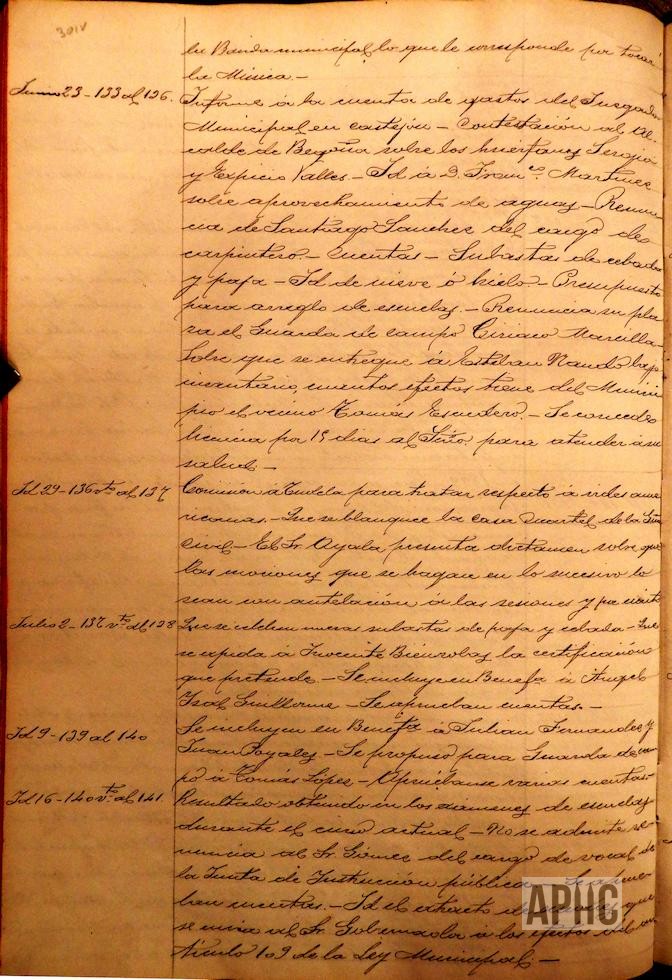 301v
la Banda municipal, lo que le corresponde por tocar
la Música. -
Junio 23 - 133 al 136. Informe á la cuenta de gastos del Juzgado
Municipal en Castejón - Contestación al Al-
calde de Begoña sobre los huérfanos Sergio
y Expicio Valles. - Id á D. Franco. Martinez
sobre aprovechamiento de aguas - Renun-
cia de Santiago Sanchez del cargo de
carpintero. - Cuentas - Subastas de cebada
y paja - Id de nieve ó hielo. - Presupuesto
para arreglo de escuelas. - Renuncia su pla-
za el Guarda de campo Ciriaco Marcilla.
Sobre que se entregue á Esteban Nando bajo
inventario, cuantos efectos tiene del Munici-
pio el vecino Tomás Escudero. - Se concede
licencia por 15 dias al Srio. para atender á su
salud. -
Id 29 - 136 vto al 137 Comisión á Tudela para tratar respecto á vides ame-
ricanas. - Que se blanquee la casa Cuartel de la Gua
Civil - El Sr. Ayala presenta dictamen sobre que
las mociones que se hagan en lo sucesivo lo
sean con antelación á las sesiones y por escrito
Julio 2 - 137 vto al 138 Que se celebren nuevas subastas de paja y cebada - Que
se expida á Inocente Bienzobas la certificación
que pretende. - Se incluye en Benefa. á Angel
Isal Guillorme - Se aprueban cuentas. -
Id 9 - 139 al 140 Se incluyen en Benefa á Julian Fernandez y
Juan Poyales - Se propuso para Guarda de cam-
po á Tomás López - Apruébanse varias cuentas.
Id 16 - 140 vto al 141. Resultado obtenido en los exámenes de escuelas
durante el curso actual - No se admite re-
nuncia al Sr. Gómez del cargo de vocal de
la Junta de Instrucción pública Se aprue-
ban cuentas. - Id el extracto de que
se envia al Sr. Gobernador á los efectos del ar-
tículo 109 de la Ley Municipal -
APHC